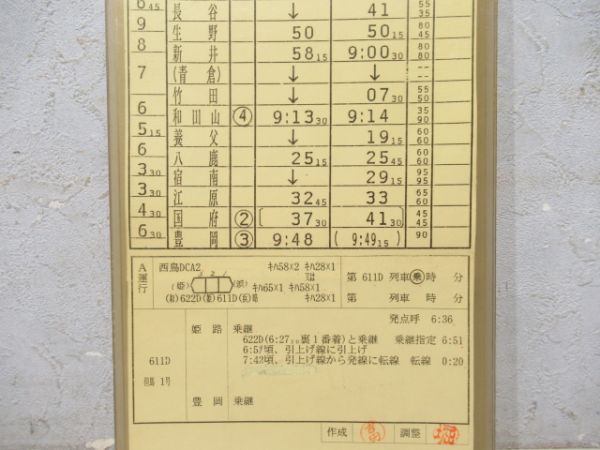 6 45 長谷 ↓ 41 55 35
9 生野 50 50 15 80 45
8 新井 58 15 9:00 30 80 80
7 (青倉) ↓ ↓ -- --
竹田 ↓ 07 30 55 50
6 和田山 ④ 9:13 30 9:14 35 90
5 15 養父 ↓ 19 15 60 60
6 八鹿 25 15 25 45 60 60
3 30 宿南 ↓ 29 15 95 95
3 30 江原 32 45 33 65 60
4 30 国府 ② [ 37 30 41 30 ] 45 45
6 30 豊岡 ③ 9:48 (9:49 15) 90
A運行 西鳥DCA2 キハ58×2 キハ28×1 第 611D 列車 乗 時 分
(姫) (浜)
キハ65×1 キハ58×1
622D 611D キハ28×1 第 列車 時 分
発点呼 6:36
姫路 乗継
622D(6:27 裏1番着)と乗継 乗継指定 6:51
頃、引上げ線に引上げ
611D 7:42頃、引上げ線から発線に転線 転線 0:20
但馬 1号
豊岡 乗継
作成 調整